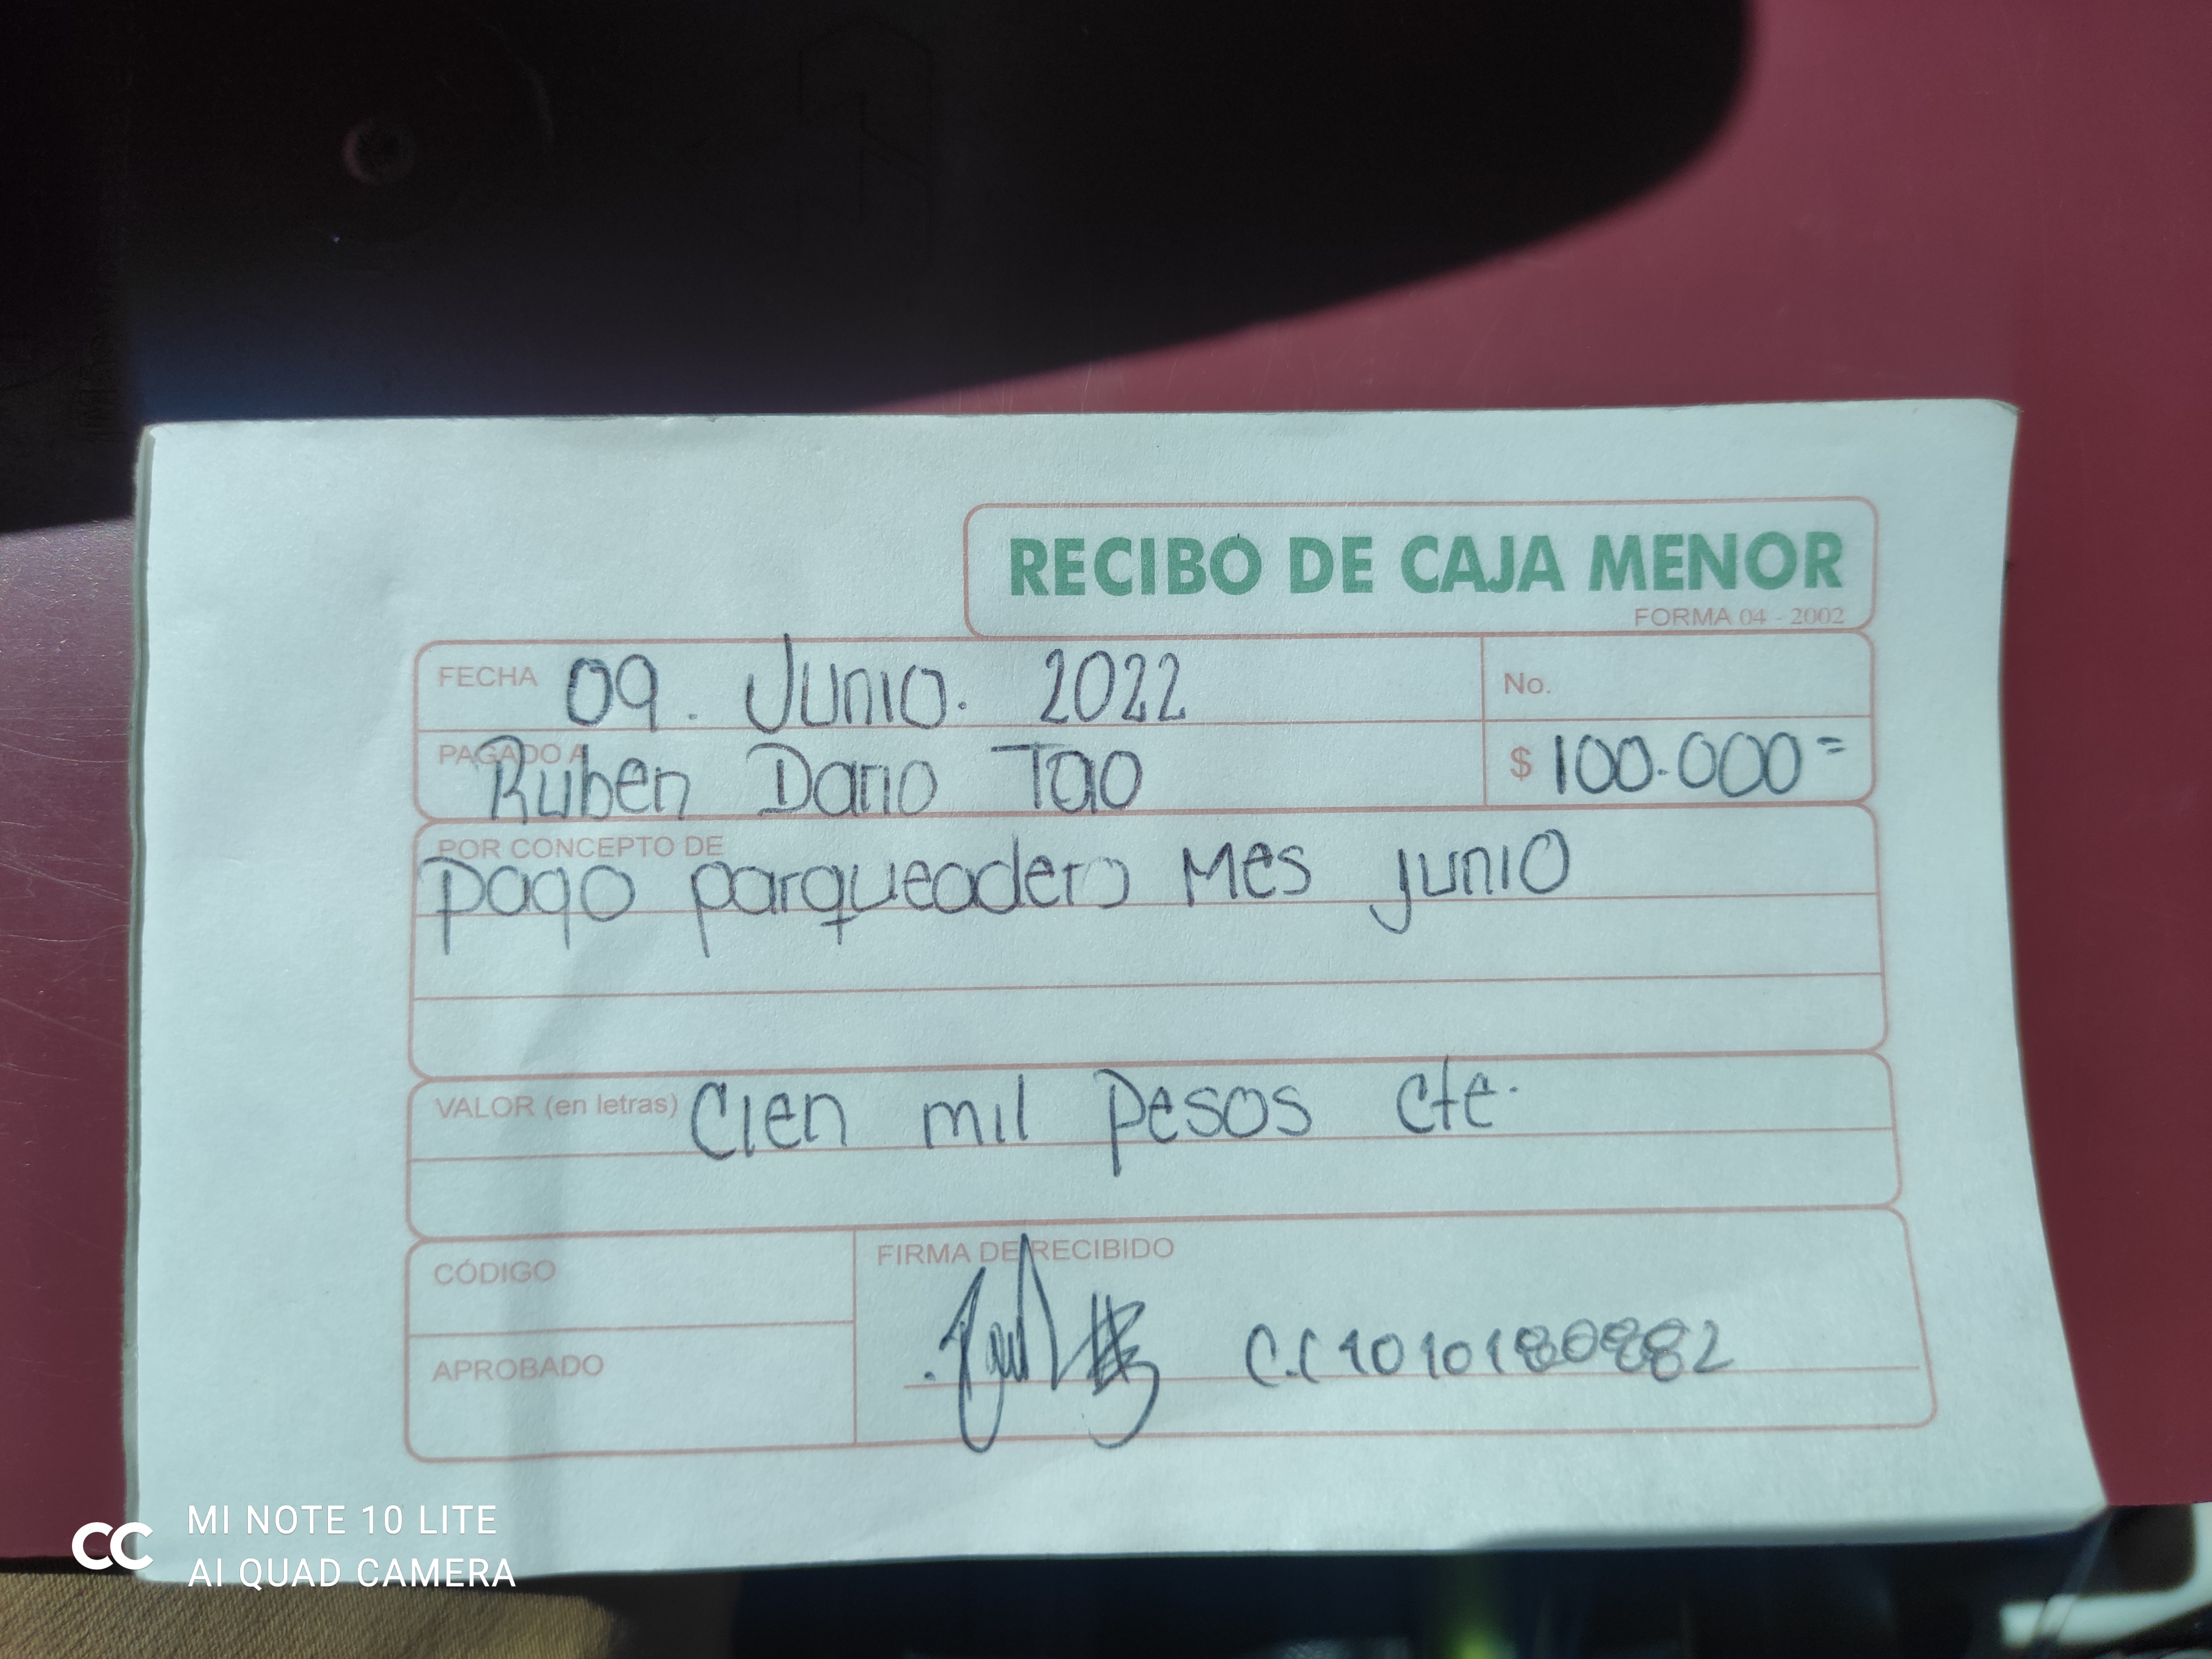 RECIBO DE CAJA MENOR
FORMA 04 - 2002
FECHA 09. Junio. 2022
No.
PAGADO A Ruben Dario Tao
$ 100.000=
POR CONCEPTO DE
pago parqueadero Mes junio
VALOR (en letras) Cien mil pesos cte.
CÓDIGO
FIRMA DE RECIBIDO
C.C 1010180882
APROBADO
MI NOTE 10 LITE
AI QUAD CAMERA